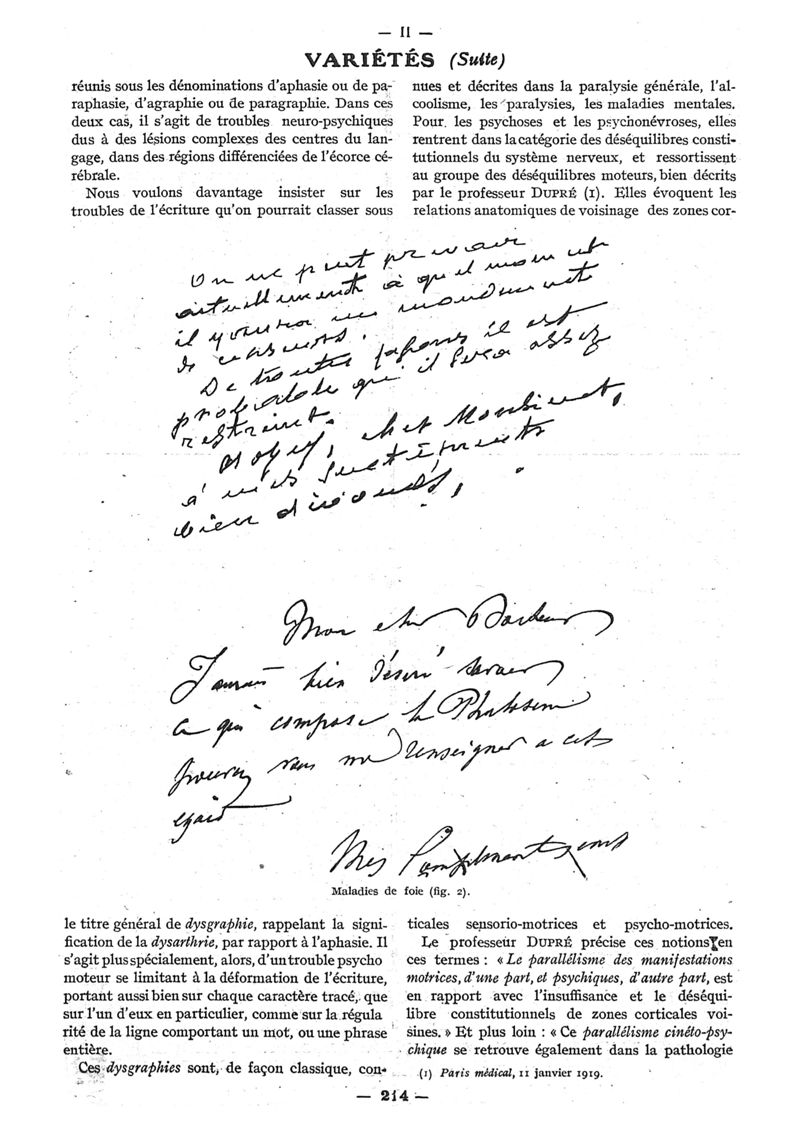 — II —
VARIÉTÉS (Suite)
réunis sous les dénominations d'aphasie ou de pa-
raphasie, d'agraphie ou de paragraphie. Dans ces
deux cas, il s'agit de troubles neuro-psychiques
dus à des lésions complexes des centres du lan-
gage, dans des régions différenciées de l'écorce cé-
rébrale.
Nous voulons davantage insister sur les
troubles de l'écriture qu'on pourrait classer sous
nues et décrites dans la paralysie générale, l'al-
coolisme, les paralysies, les maladies mentales.
Pour les psychoses et les psychonévroses, elles
rentrent dans la catégorie des déséquilibres consti-
tutionnels du système nerveux, et ressortissent
au groupe des déséquilibres moteurs, bien décrits
par le professeur DUPRÉ (1). Elles évoquent les
relations anatomiques de voisinage des zones cor-
On ne peut prevoir
actuellement à quel moment
il y aura un mouvement
De toutes façons il est
probable qu'il sera assez
restreint.
cher Monsieur,
à mes sentiments
bien dévoués,
Mon cher Docteur
J'aurais bien désiré savoir
ce qui compose la
pourrez vous me renseigner a cet
egard
Mes Compliments
Maladies de foie (fig. 2).
le titre général de dysgraphie, rappelant la signi-
fication de la dysarthrie, par rapport à l'aphasie. Il
s'agit plus spécialement, alors, d'un trouble psycho
moteur se limitant à la déformation de l'écriture,
portant aussi bien sur chaque caractère tracé, que
sur l'un d'eux en particulier, comme sur la régula
rité de la ligne comportant un mot, ou une phrase
entière.
Ces dysgraphies sont, de façon classique, con-
ticales sensorio-motrices et psycho-motrices.
Le professeur DUPRÉ précise ces notions en
ces termes : « Le parallélisme des manifestations
motrices, d'une part, et psychiques, d'autre part, est
en rapport avec l'insuffisance et le déséqui-
libre constitutionnels de zones corticales voi-
sines. » Et plus loin : « Ce parallélisme cinéto-psy-
chique se retrouve également dans la pathologie
(1) Paris médical, 11 janvier 1919.
— 214 —